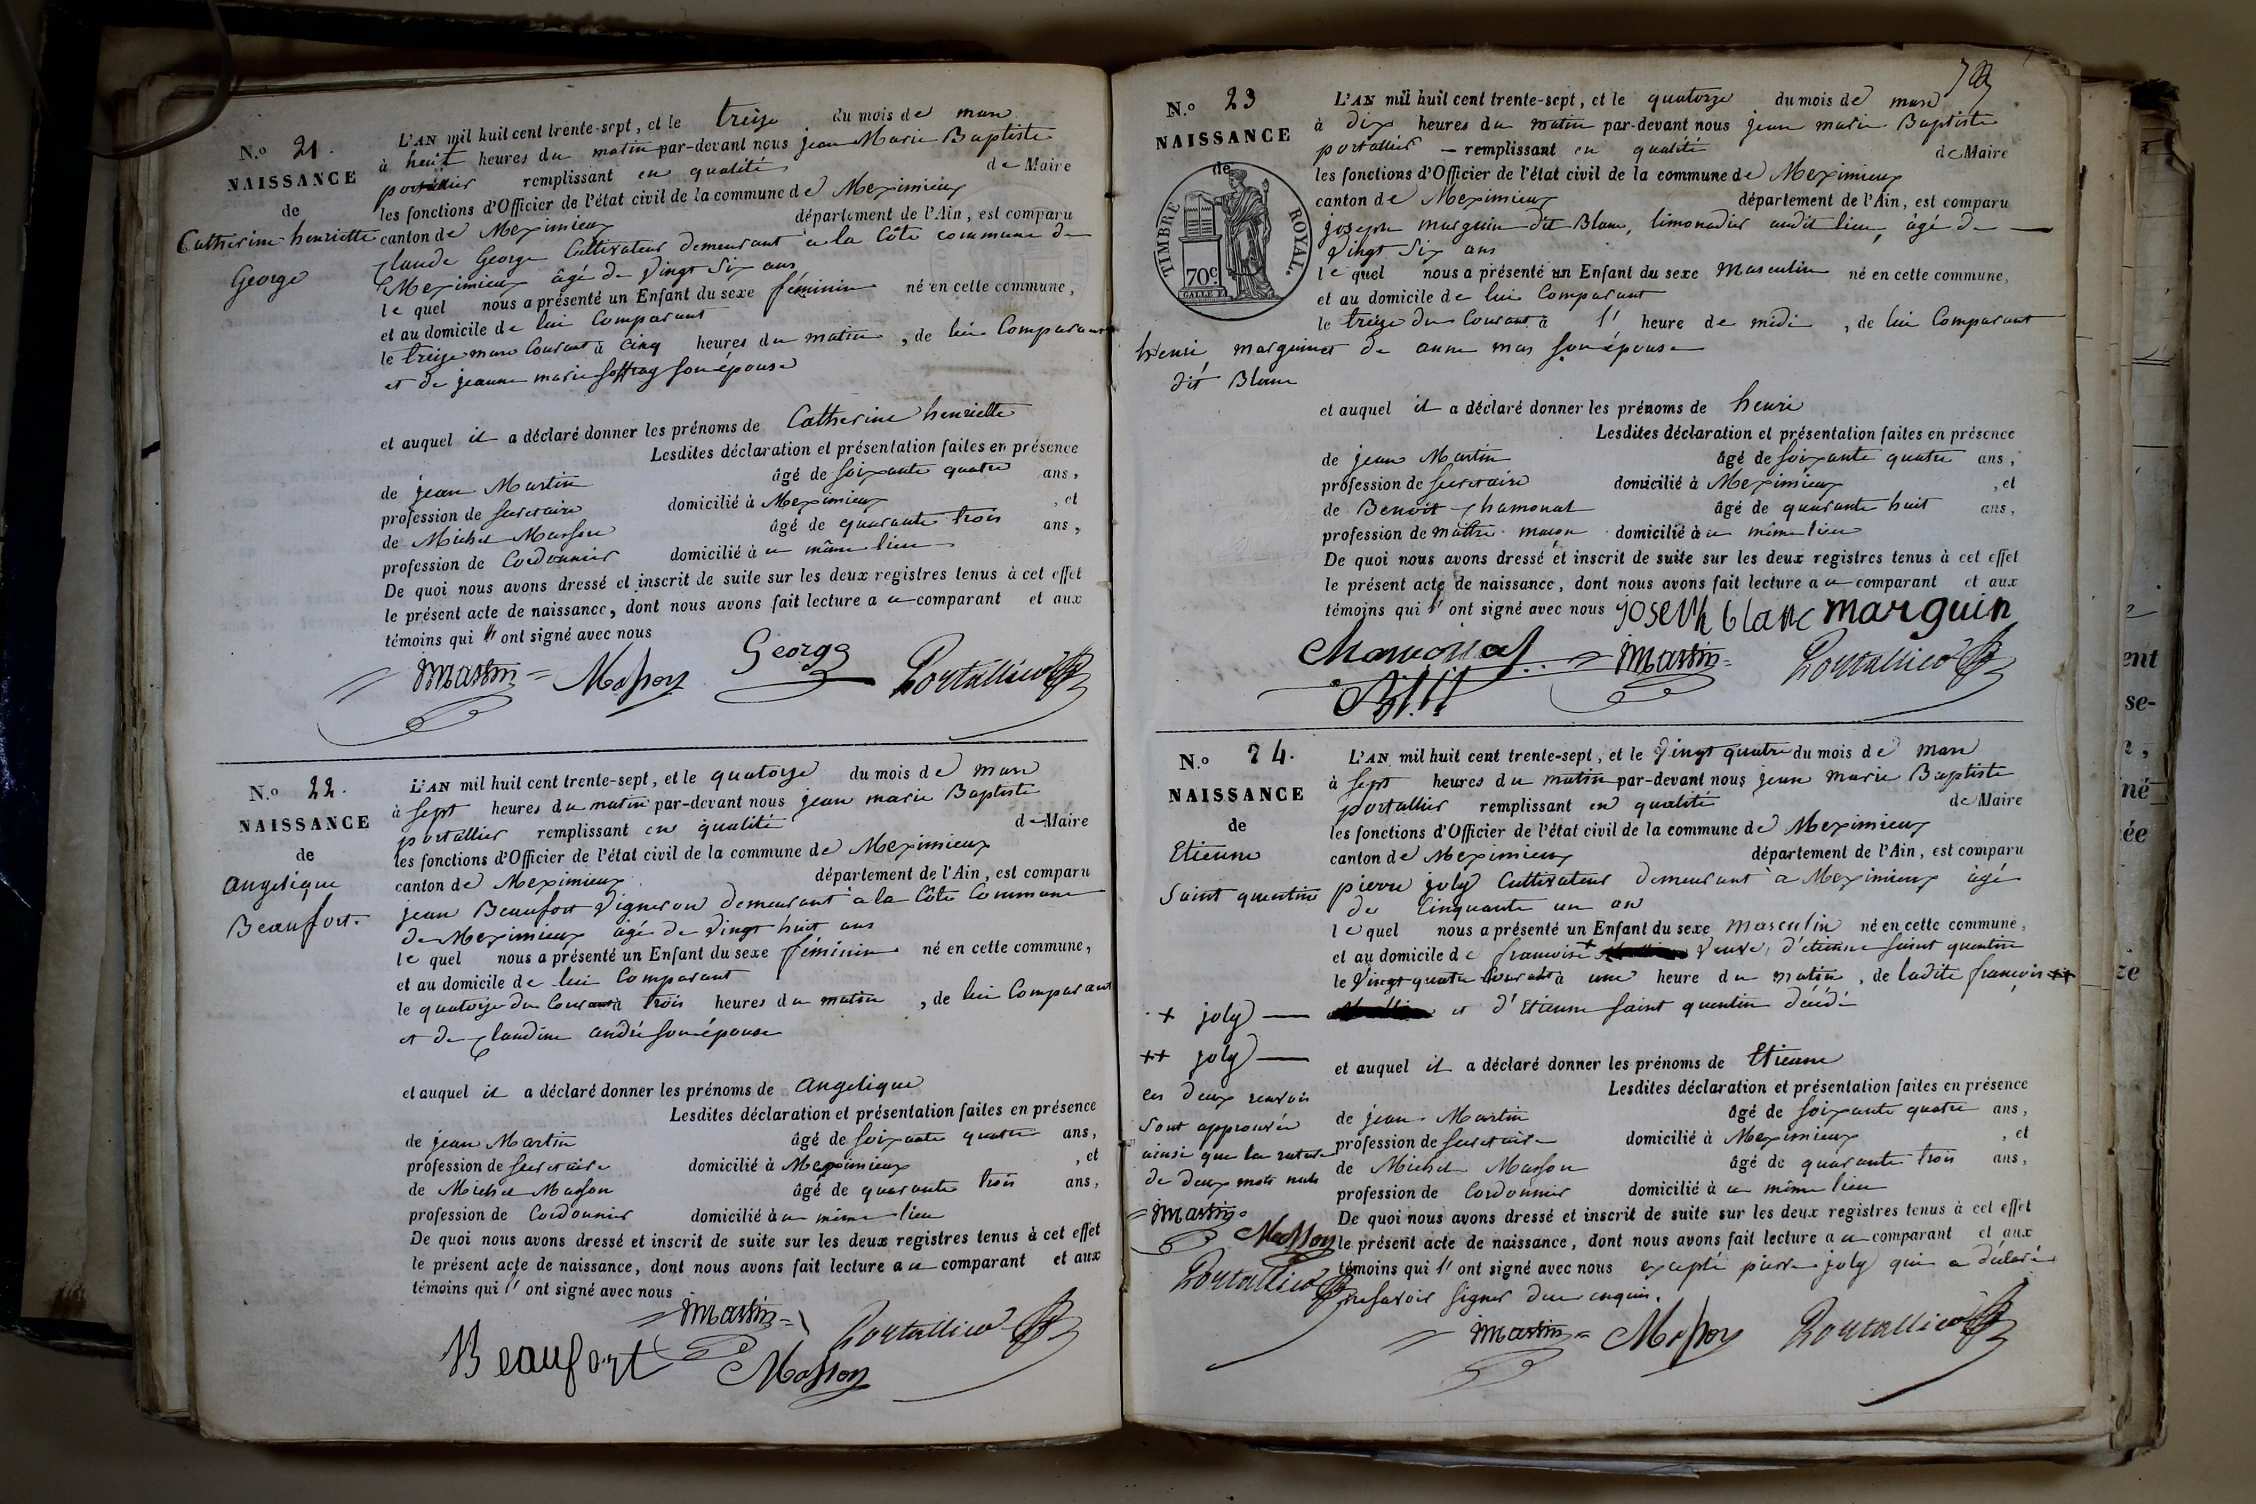 N.o 21.
NAISSANCE
de
Catherine henriette
George
L'AN mil huit cent trente-sept, et le treize du mois de mars
à huit heures du matin par-devant nous jean Marie Baptiste
portallier remplissant en qualité de Maire
les fonctions d'Officier de l'état civil de la commune de Meximieux
canton de Meximieux département de l'Ain, est comparu
Claude George Cultivateur demeurant à la Côte commune de
Meximieux âgé de vingt six ans
le quel nous a présenté un Enfant du sexe féminin né en cette commune,
et au domicile de lui Comparant
le treize mars Courant à cinq heures du matin, de lui Comparant
et de jeanne marie son épouse
et auquel il a déclaré donner les prénoms de Catherine henriette
Lesdites déclaration et présentation faites en présence
de jean Martin âgé de soixante quatre ans,
profession de secretaire domicilié à Meximieux, et
de Michel Masson âgé de quarante trois ans,
profession de Cordonnier domicilié à ce même lieu
De quoi nous avons dressé et inscrit de suite sur les deux registres tenus à cet effet
le présent acte de naissance, dont nous avons fait lecture a ce comparant et aux
témoins qui l' ont signé avec nous
Martin Masson George Portallier
N.o 22.
NAISSANCE
de
angelique
Beaufort.
L'AN mil huit cent trente-sept, et le quatorze du mois de mars
à sept heures du matin par-devant nous jean marie Baptiste
portallier remplissant en qualité de Maire
les fonctions d'Officier de l'état civil de la commune de Meximieux
canton de Meximieux département de l'Ain, est comparu
jean Beaufort vigneron demeurant à la Côte Commune
de Meximieux âgé de vingt huit ans
le quel nous a présenté un Enfant du sexe féminin né en cette commune,
et au domicile de lui Comparant
le quatorze du Courant à trois heures du matin, de lui Comparant
et de Claudine andré son épouse
et auquel il a déclaré donner les prénoms de angelique
Lesdites déclaration et présentation faites en présence
de jean Martin âgé de soixante quatre ans,
profession de secretaire domicilié à Meximieux, et
de Michel Masson âgé de quarante trois ans,
profession de Cordonnier domicilié à ce même lieu
De quoi nous avons dressé et inscrit de suite sur les deux registres tenus à cet effet
le présent acte de naissance, dont nous avons fait lecture a ce comparant et aux
témoins qui l' ont signé avec nous
Martin Portallier
Beaufort Masson
N.o 23
NAISSANCE
de
TIMBRE ROYAL.
70 c.
henri marguin
dit Blanc
L'AN mil huit cent trente-sept, et le quatorze du mois de mars
à dix heures du matin par-devant nous jean marie Baptiste
portallier — remplissant en qualité de Maire
les fonctions d'Officier de l'état civil de la commune de Meximieux
canton de Meximieux département de l'Ain, est comparu
joseph marguin dit Blanc, limonadier audit lieu, âgé de —
vingt six ans
le quel nous a présenté un Enfant du sexe Masculin né en cette commune,
et au domicile de lui Comparant
le treize du Courant à l' heure de midi, de lui Comparant
et de anne mas son épouse
et auquel il a déclaré donner les prénoms de henri
Lesdites déclaration et présentation faites en présence
de jean Martin âgé de soixante quatre ans,
profession de secretaire domicilié à Meximieux, et
de Benoit Chamonat âgé de quarante huit ans,
profession de maître maçon domicilié à ce même lieu
De quoi nous avons dressé et inscrit de suite sur les deux registres tenus à cet effet
le présent acte de naissance, dont nous avons fait lecture a ce comparant et aux
témoins qui l' ont signé avec nous joseph blanc marguin
Martin Portallier
N.o 24.
NAISSANCE
de
Etienne
Saint quentin
L'AN mil huit cent trente-sept, et le vingt quatre du mois de mars
à sept heures du matin par-devant nous jean marie Baptiste
portallier remplissant en qualité de Maire
les fonctions d'Officier de l'état civil de la commune de Meximieux
canton de Meximieux département de l'Ain, est comparu
pierre joly Cultivateur demeurant à Meximieux âgé
de Cinquante un an
le quel nous a présenté un Enfant du sexe masculin né en cette commune,
et au domicile de francoise + veuve d'etienne saint quentin
le vingt quatre Courant à une heure du matin, de ladite francoise ++
et d'Etienne saint quentin décédé
et auquel il a déclaré donner les prénoms de Etienne
Lesdites déclaration et présentation faites en présence
de jean Martin âgé de soixante quatre ans,
profession de secretaire domicilié à Meximieux, et
de Michel Masson âgé de quarante trois ans,
profession de Cordonnier domicilié à ce même lieu
De quoi nous avons dressé et inscrit de suite sur les deux registres tenus à cet effet
le présent acte de naissance, dont nous avons fait lecture a ce comparant et aux
témoins qui l' ont signé avec nous excepté pierre joly qui a déclaré
ne savoir signer de ce enquis.
Martin Masson Portallier
+ joly —
++ joly —
ces deux renvois
sont approuvés
ainsi que la rature
de deux mots nuls
Martin
Masson
Portallier
ent
se-
né
ée